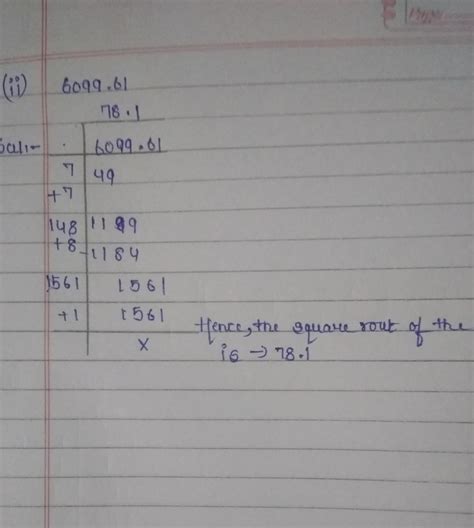 (ii) 6099.61
78.1
Sol:- 6099.61
7 49
+7
148 1199
+8 -1184
1561 1561
+1 1561
x
Hence, the square rout of the
is → 78.1